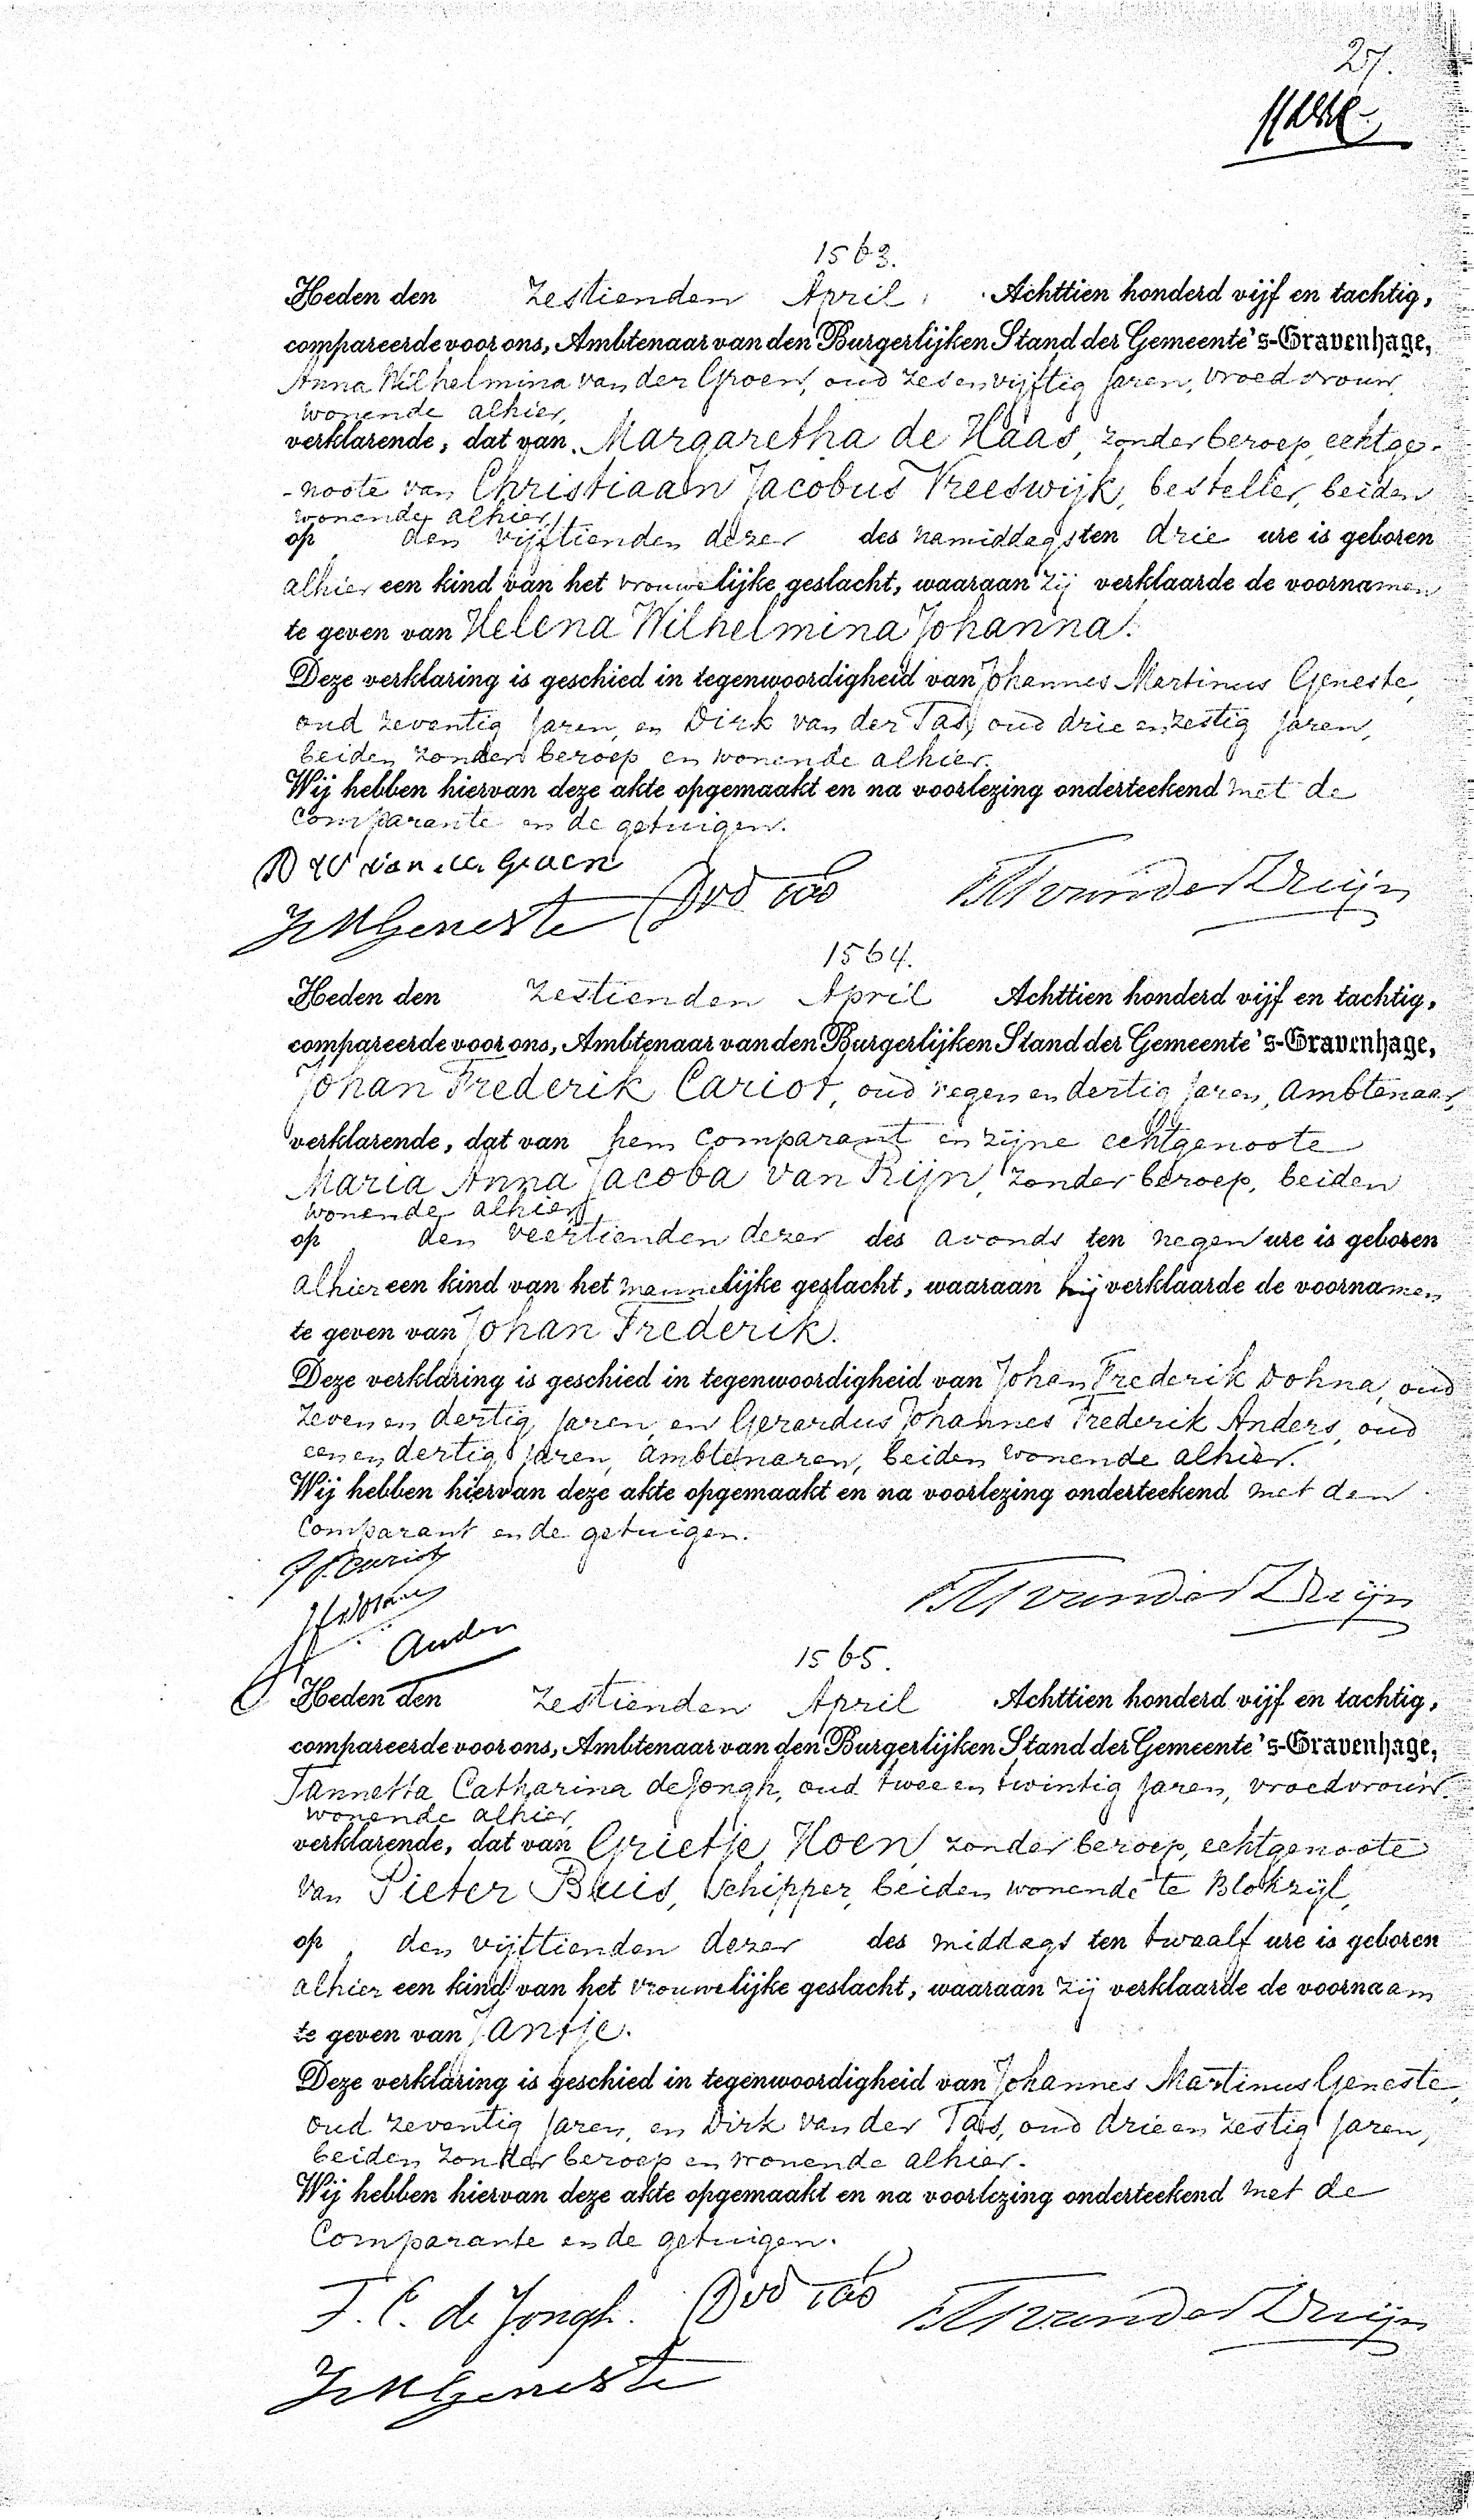 27.
1563.
Heden den Zestienden April Achttien honderd vijf en tachtig,
compareerde voor ons, Ambtenaar van den Burgerlijken Stand der Gemeente 's-Gravenhage,
Anna Wilhelmina van der Groen, oud zes en vijftig jaren, vroedvrouw,
wonende alhier,
verklarende, dat van Margaretha de Haas, zonder beroep, echtge-
-noote van Christiaan Jacobus Vreeswijk, besteller, beiden
wonende alhier,
op den vijftienden dezer des namiddags ten drie ure is geboren
alhier een kind van het vrouwelijke geslacht, waaraan zij verklaarde de voornamen
te geven van Helena Wilhelmina Johanna.
Deze verklaring is geschied in tegenwoordigheid van Johannes Martinus Geneste,
oud zeventig jaren, en Dirk van der Tas, oud drie en zestig jaren,
beiden zonder beroep en wonende alhier.
Wij hebben hiervan deze akte opgemaakt en na voorlezing onderteekend met de
Comparante en de getuigen.
A W van der Groen
JMGeneste DvdTas van der Druijn
1564.
Heden den Zestienden April Achttien honderd vijf en tachtig,
compareerde voor ons, Ambtenaar van den Burgerlijken Stand der Gemeente 's-Gravenhage,
Johan Frederik Cariot, oud negen en dertig jaren, ambtenaar,
verklarende, dat van hem Comparant en zijne echtgenoote
Maria Anna Jacoba van Rijn, zonder beroep, beiden
wonende alhier,
op den veertienden dezer des avonds ten negen ure is geboren
alhier een kind van het mannelijke geslacht, waaraan hij verklaarde de voornamen
te geven van Johan Frederik.
Deze verklaring is geschied in tegenwoordigheid van Johan Frederik Dohna, oud
zeven en dertig jaren, en Gerardus Johannes Frederik Anders, oud
een en dertig jaren, ambtenaren, beiden wonende alhier.
Wij hebben hiervan deze akte opgemaakt en na voorlezing onderteekend met den
Comparant en de getuigen.
J F. Cariot
van der Druijn
Anders
1565.
Heden den Zestienden April Achttien honderd vijf en tachtig,
compareerde voor ons, Ambtenaar van den Burgerlijken Stand der Gemeente 's-Gravenhage,
Tannetta Catharina de Jongh, oud twee en twintig jaren, vroedvrouw,
wonende alhier,
verklarende, dat van Grietje Hoen, zonder beroep, echtgenoote
van Pieter Buis, Schipper, beiden wonende te Blokzijl,
op den vijftienden dezer des middags ten twaalf ure is geboren
alhier een kind van het vrouwelijke geslacht, waaraan zij verklaarde de voornaam
te geven van Jantje.
Deze verklaring is geschied in tegenwoordigheid van Johannes Martinus Geneste,
oud zeventig jaren, en Dirk van der Tas, oud drie en zestig jaren,
beiden zonder beroep en wonende alhier.
Wij hebben hiervan deze akte opgemaakt en na voorlezing onderteekend met de
Comparante en de getuigen.
T. C. de Jongh. DvdTas van der Druijn
JMGeneste